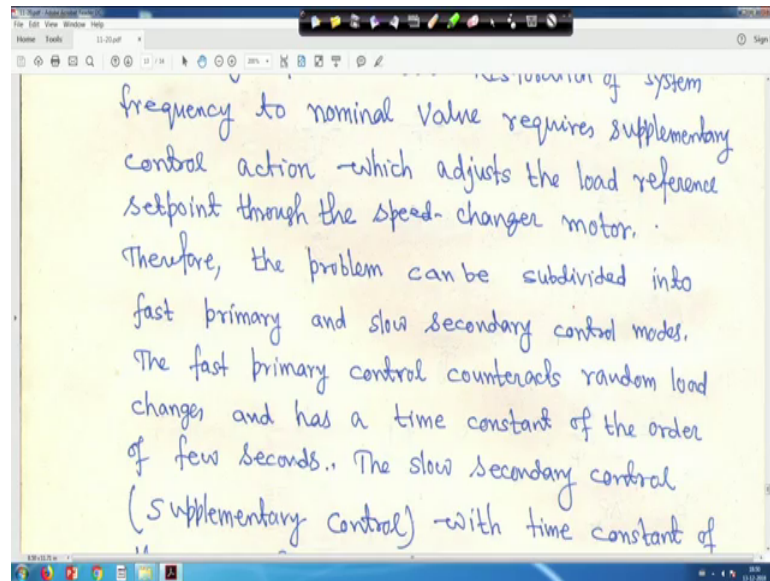 File Edit View Window Help
Home Tools 11-20.pdf × Sign
of system
frequency to nominal value requires supplementary
control action which adjusts the load reference
setpoint through the speed-changer motor.
Therefore, the problem can be subdivided into
fast primary and slow secondary control modes.
The fast primary control counteracts random load
changes and has a time constant of the order
of few seconds.. The slow secondary control
(supplementary control) with time constant of